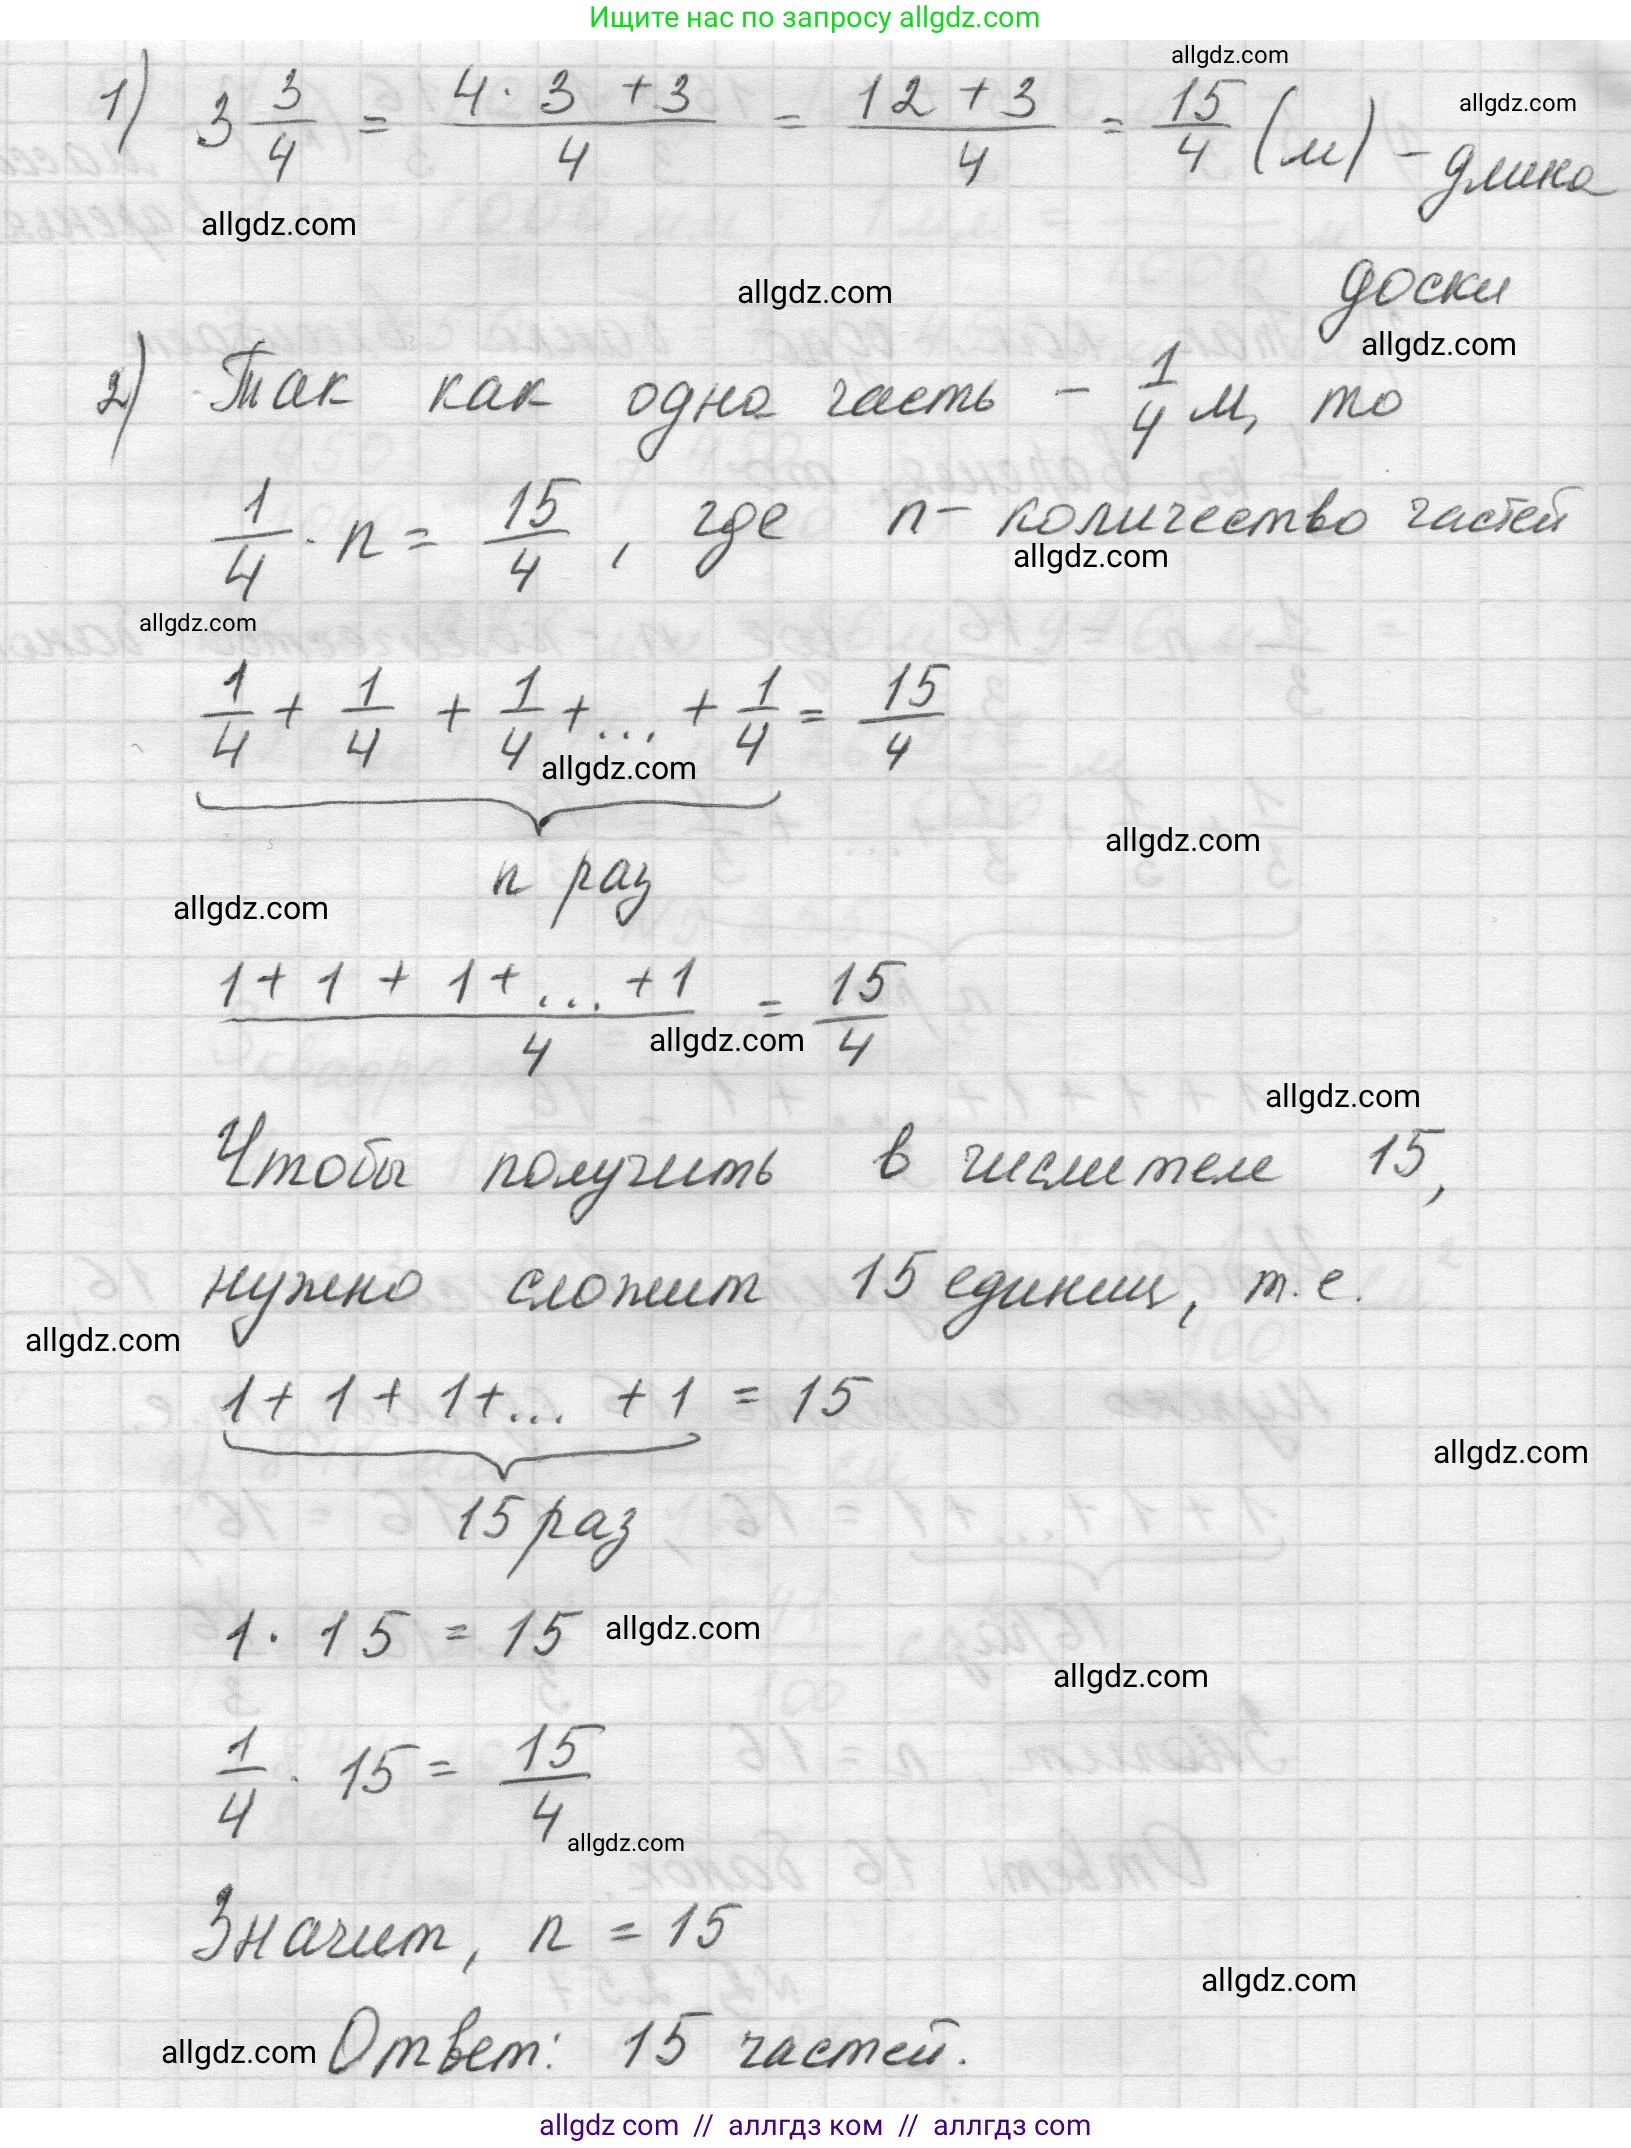 Ищите нас по запросу allgdz.com
allgdz.com
1) 3 3/4 = (4 · 3 + 3)/4 = (12 + 3)/4 = 15/4 (м) – длина
allgdz.com
allgdz.com
allgdz.com
доски
allgdz.com
2) Так как одна часть – 1/4 м, то
1/4 · n = 15/4 , где n – количество частей
allgdz.com
allgdz.com
1/4 + 1/4 + 1/4 + ... + 1/4 = 15/4
allgdz.com
allgdz.com
n раз
allgdz.com
(1 + 1 + 1 + ... + 1)/4 = 15/4
allgdz.com
allgdz.com
Чтобы получить в числителе 15,
нужно сложит 15 единиц, т.е.
allgdz.com
1 + 1 + 1 + ... + 1 = 15
allgdz.com
15 раз
1 · 15 = 15
allgdz.com
allgdz.com
1/4 · 15 = 15/4
allgdz.com
Значит, n = 15
allgdz.com
allgdz.com
Ответ: 15 частей.
allgdz com // аллгдз ком // аллгтдз com